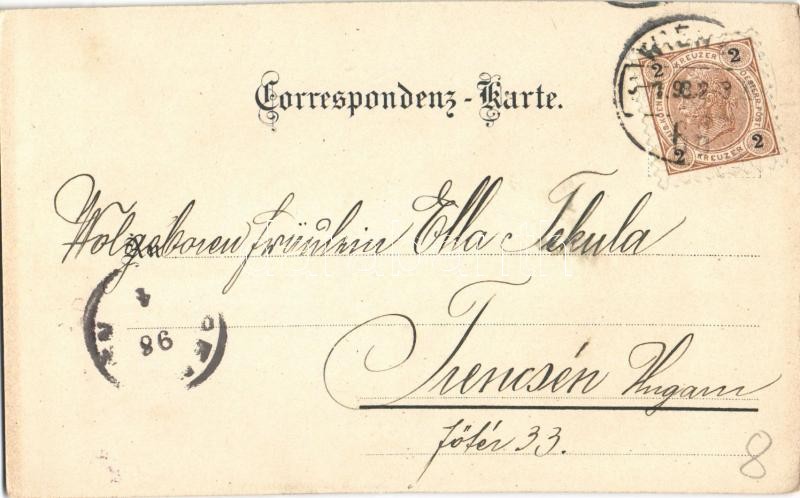 WIEN
98
2 KREUZER 2
2 KREUZER 2
Correspondenz-Karte.
Wolgeboren Fräulein Ella Tekula
98
Trencsén Ungarn
Főtér 33.
8